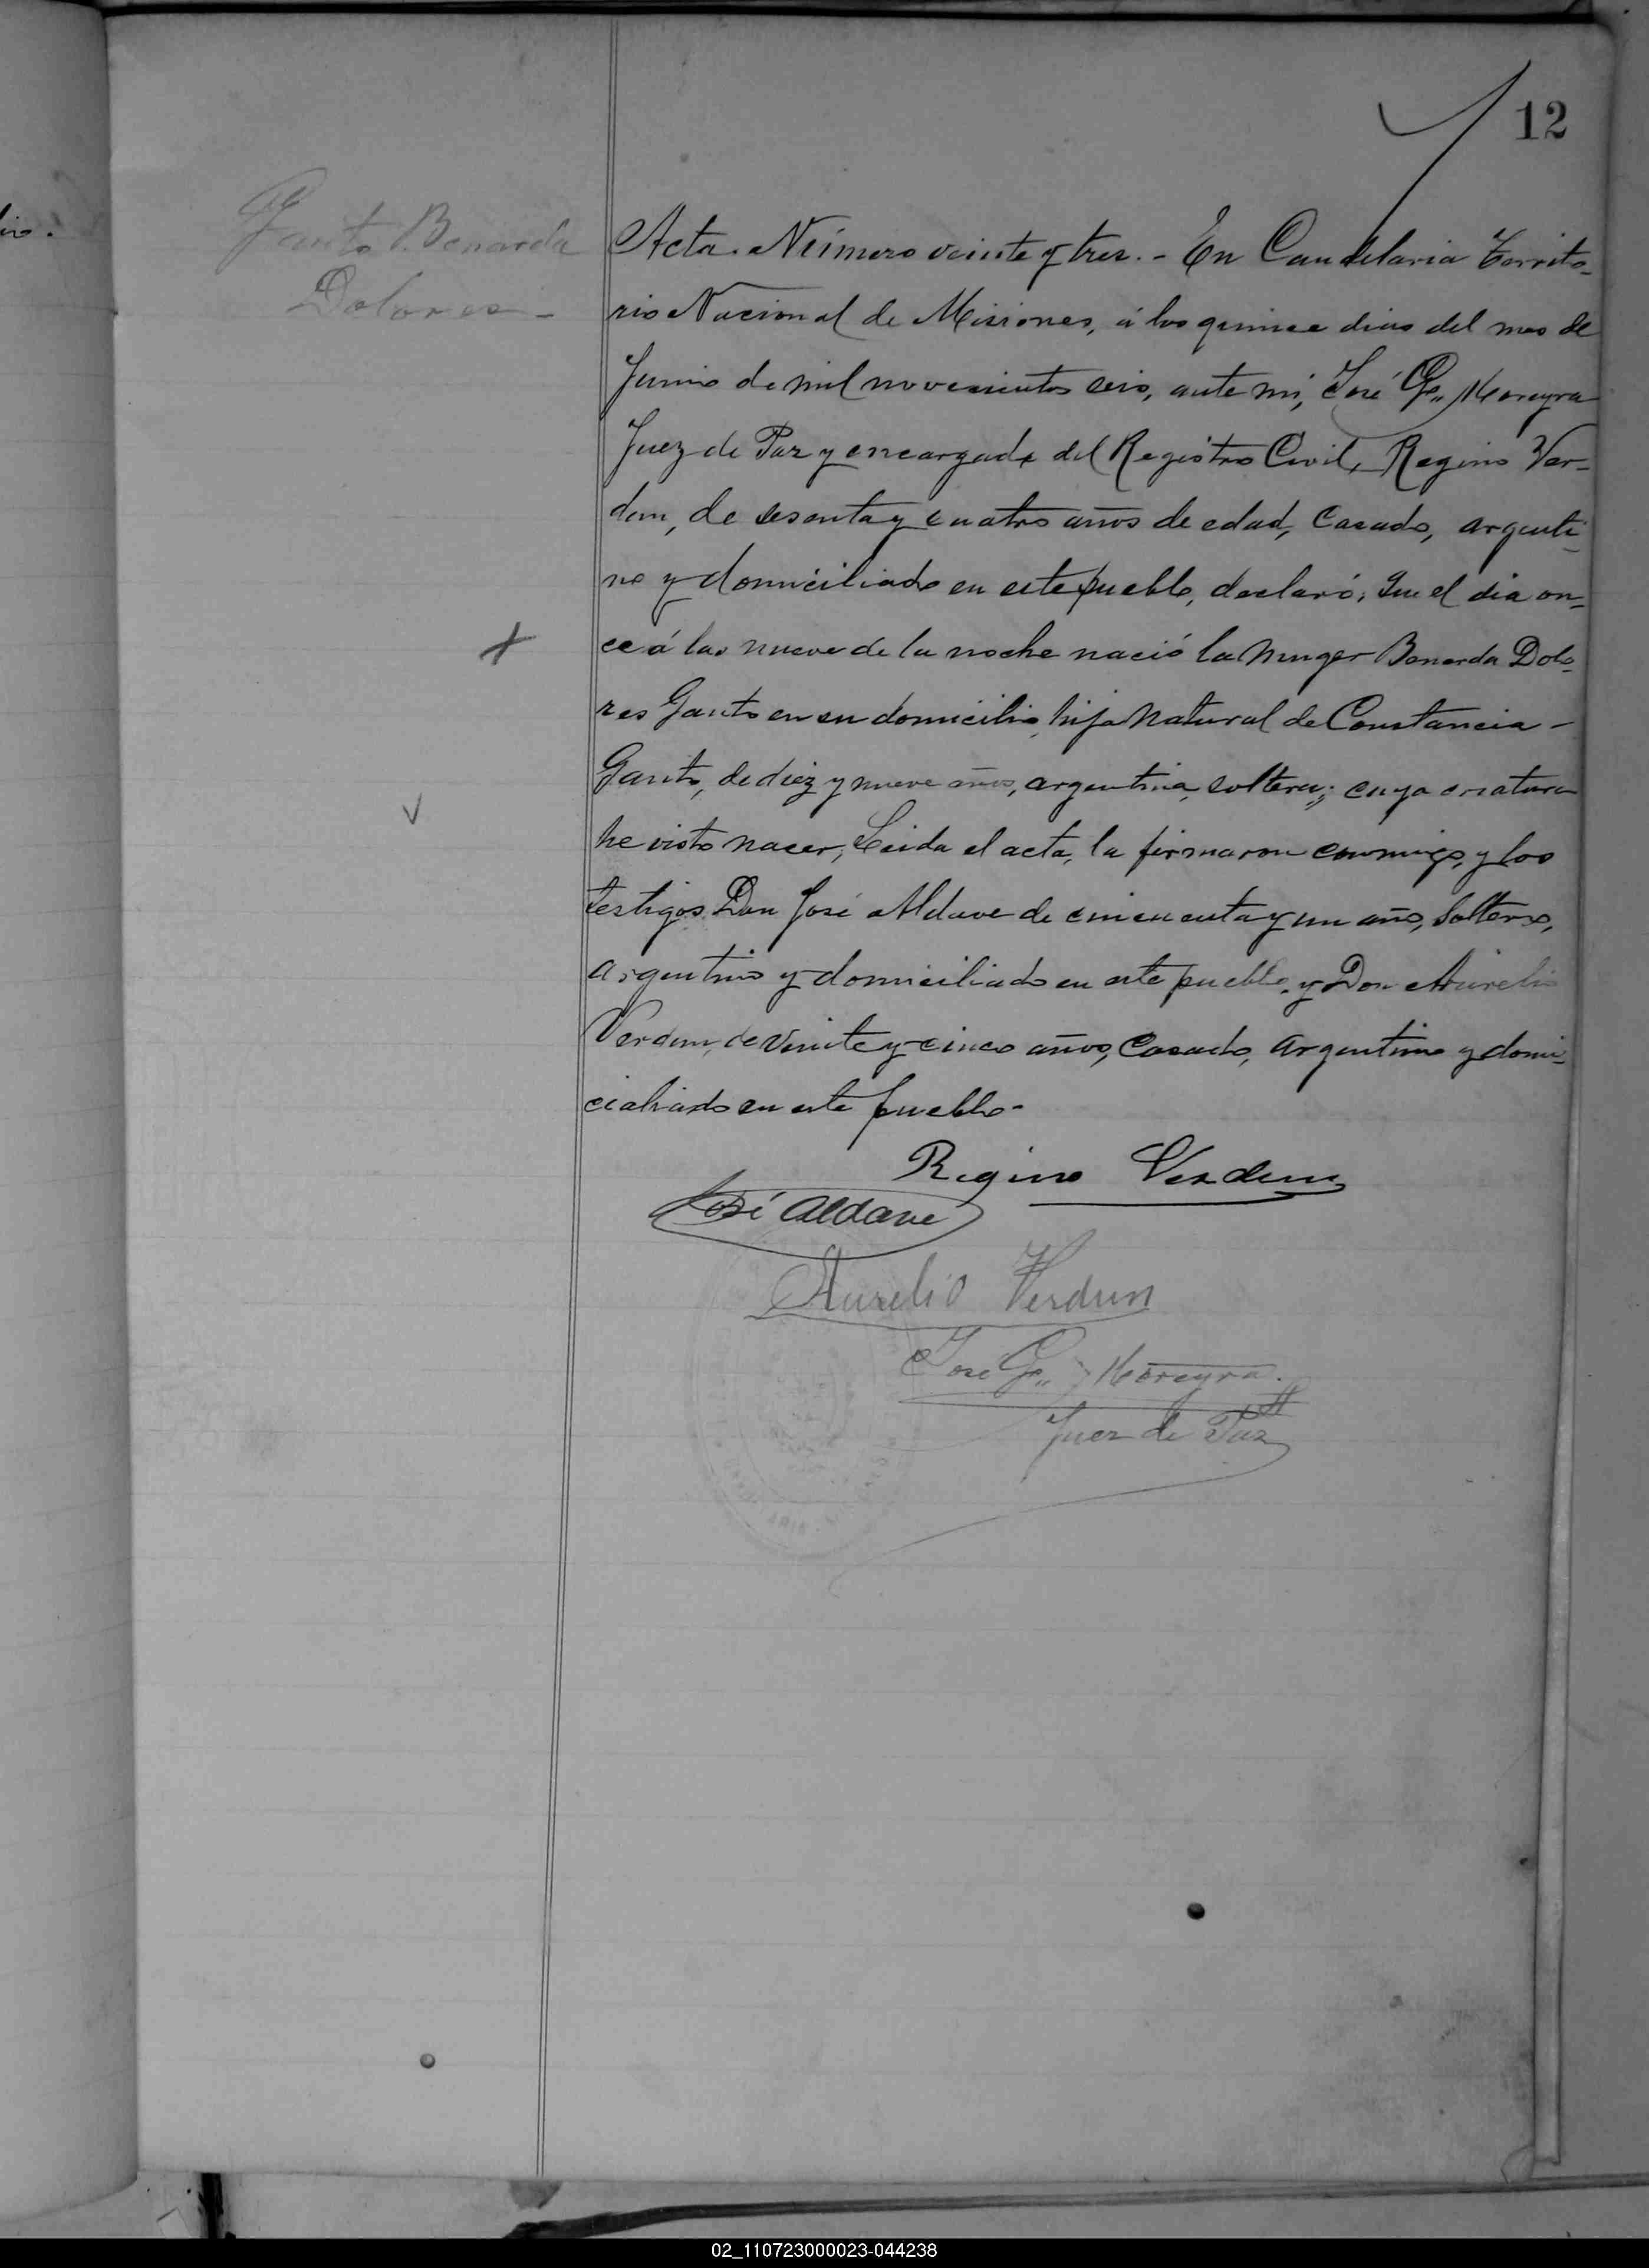 12
Gauto Benarda
Dolores -
Acta Número veinte y tres. - En Candelaria Territo-
rio Nacional de Misiones, á los quince dias del mes de
Junio de mil novecientos seis, ante mi, José G,, Moreyra
Juez de Paz y encargado del Registro Civil, Regino Ver-
dun, de sesenta y cuatro años de edad, Casado, argenti-
no y domiciliado en este pueblo, declaró; Que el dia on-
ce á las nueve de la noche nació la muger Benarda Dolo-
res Gauto en su domicilio, hija natural de Constancia -
Gauto, de diez y nueve años, argentina, soltera; cuya criatura
he visto nacer; Leida el acta, la firmaron conmigo, y los
testigos Don José Aldave de cincuenta y un año, Soltero,
argentino y domiciliado en este pueblo, y Don Aurelio
Verdun, de veinte y cinco años, Casado, argentino y domi-
ciliado en este pueblo -
Regino Verdun
José Aldave
Aurelio Verdun
José G,, Moreyra.
Juez de Paz
02_110723000023-044238